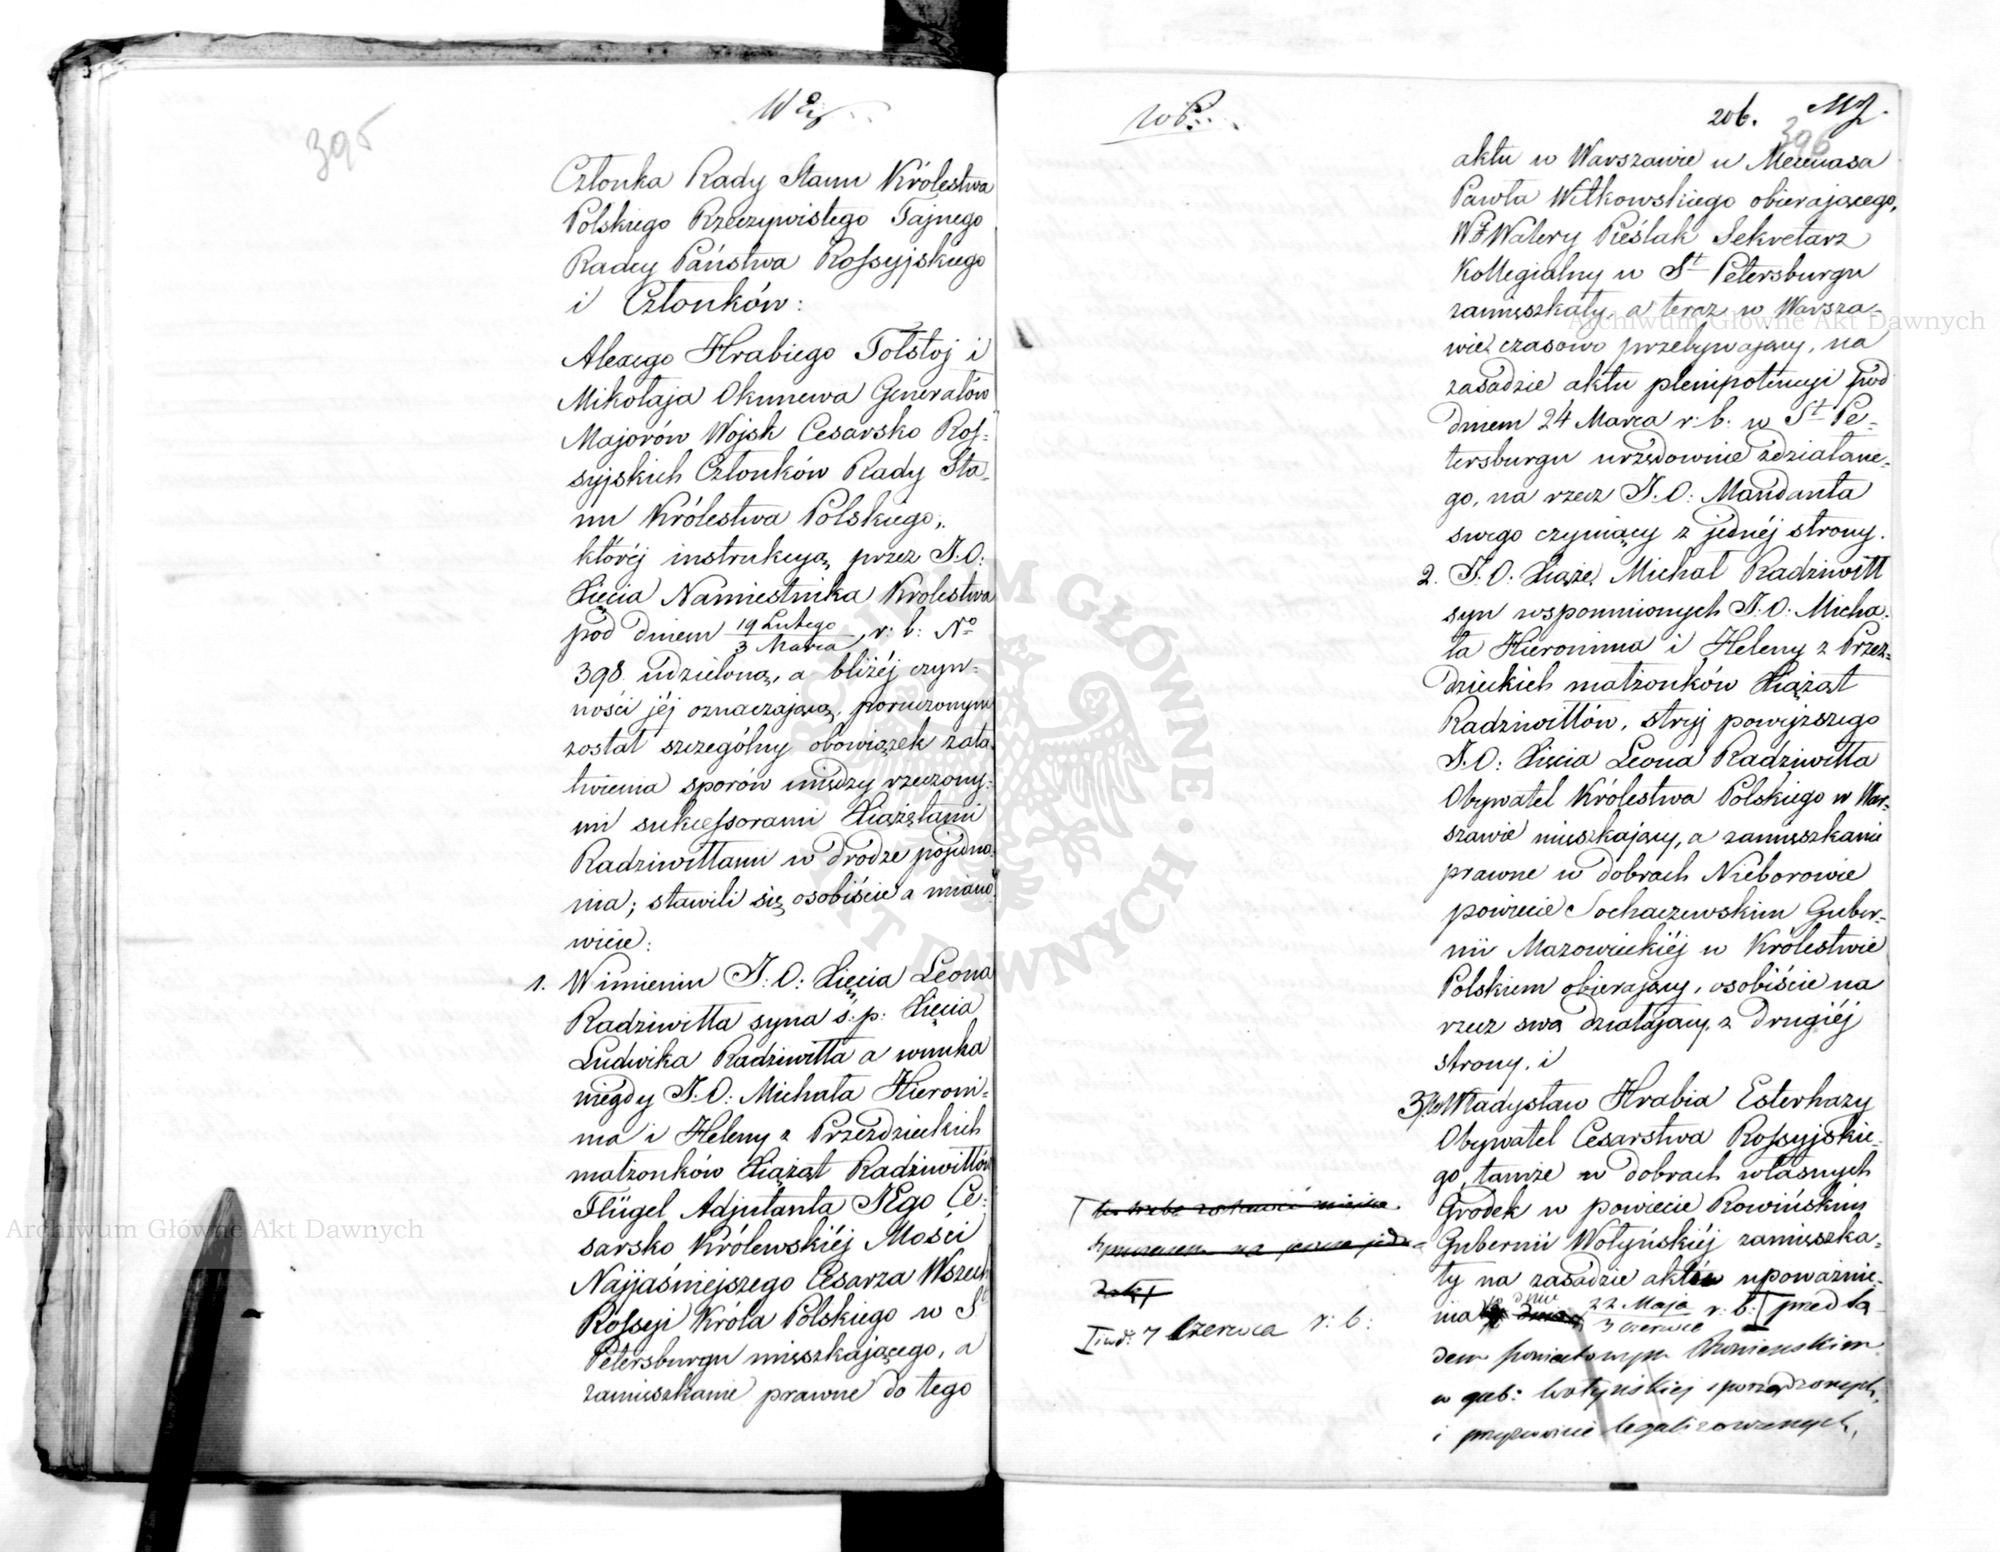 395
Członka Rady Stanu Królestwa
Polskiego Rzeczywistego Tajnego
Radcy Państwa Rossyjskiego
i Członków:
Alexego Hrabiego Tołstoj i
Mikołaja Okunewa Generałów
Majorów Wojsk Cesarsko Ros=
syjskich Członków Rady Sta=
nu Królestwa Polskiego;
któréj instrukcyą, przez J.O:
Xięcia Namiestnika Królestwa
pod dniem 19 Lutego / 3 Marca r: b: No
398. udzieloną, a bliżéj czyn=
ności jéj oznaczającą, poruczonym
został szczególny obowiązek zała=
twienia sporów między rzeczony=
mi sukcessorami Xiążętami
Radziwiłłami w drodze pojedna=
nia; stawili się osobiście a miano=
wicie:
1. W imieniu J:O: Xięcia Leona
Radziwiłła syna ś:p: Xięcia
Ludwika Radziwiłła a wnuka
niegdy J.O: Michała Hieroni=
ma i Heleny z Przeździeckich
małżonków Xiążąt Radziwiłłów
Flügel Adjutanta JEgo Ce=
sarsko Królewskiéj Mości
Najjaśniejszego Cesarza Wszech
Rossyi Króla Polskiego w St
Petersburgu mieszkającego, a
zamieszkanie prawne do tego
206.
396
aktu w Warszawie u Mecenasa
Pawła Witkowskiego obierającego,
WJ Walery Pieślak Sekretarz
Kollegialny w St Petersburgu
zamieszkały, a teraz w Warsza=
wie czasowo przebywający, na
zasadzie aktu plenipotencyi pod
dniem 24 Marca r: b: w St Pe=
tersburgu urzędownie zdziałane=
go, na rzecz J.O: Mandanta
swego czyniący z jednéj strony.
2. J:O: Xiąże Michał Radziwiłł
syn wspomnionych J.O: Micha=
ła Hieronima i Heleny z Przez=
dzieckich małżonków Xiążąt
Radziwiłłów, stryj powyższego
J.O: Xięcia Leona Radziwiłła
Obywatel Królestwa Polskiego w War=
szawie mieszkający, a zamieszkanie
prawne w dobrach Nieborowie
powiecie Sochaczewskim Guber=
nii Mazowieckiéj w Królestwie
Polskiem obierający, osobiście na
rzecz swą działający z drugiéj
strony, i
3. Władysław Hrabia Esterhazy
Obywatel Cesarstwa Rossyjskie=
go, tamże w dobrach własnych
Gródek w powiecie Rowińskim
Gubernii Wołyńskiéj zamieszka=
ły na zasadzie aktów upoważnie=
nia w dniu 22 Maja / 3 Czerwca r: b: przed Są
dem powiatowym
w gub: Wołyńskiej sporządzonych,
i legalizowanych,
7 Czerwca r: b:
Archiwum Główne Akt Dawnych
Archiwum Główne Akt Dawnych
ARCHIWUM GŁÓWNE AKT DAWNYCH